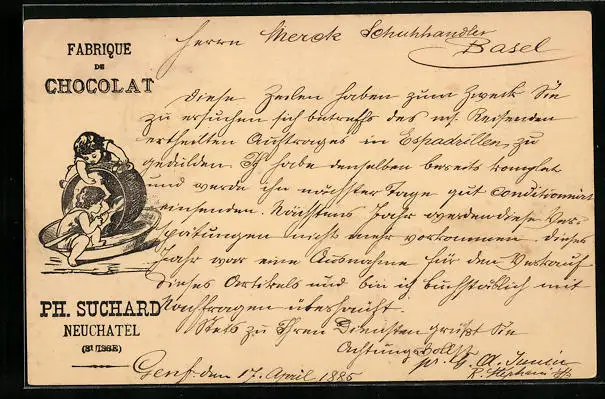 FABRIQUE
DE
CHOCOLAT
PH. SUCHARD
NEUCHATEL
(SUISSE)
Herrn Merck Schuhhandler
Basel
Diese Zeilen haben zum Zweck Sie
zu ersuchen sich betreffs des m/. Reisenden
ertheilten Auftrages in Espadrillen, zu
gedulden. Ich habe denselben bereits komplet
und werde ihn nächster Tage gut conditionnirt
einsenden. Nächstens Jahr werden diese Ver-
spätungen nicht mehr vorkommen. Dieses
Jahr war eine Ausnahme für den Verkauf
dieses Artikels und bin ich buchstäblich mit
Nachfragen überhäuft.
Stets zu Ihren Diensten grüßt Sie
Achtungsvollst
Genf den 17. April 1885